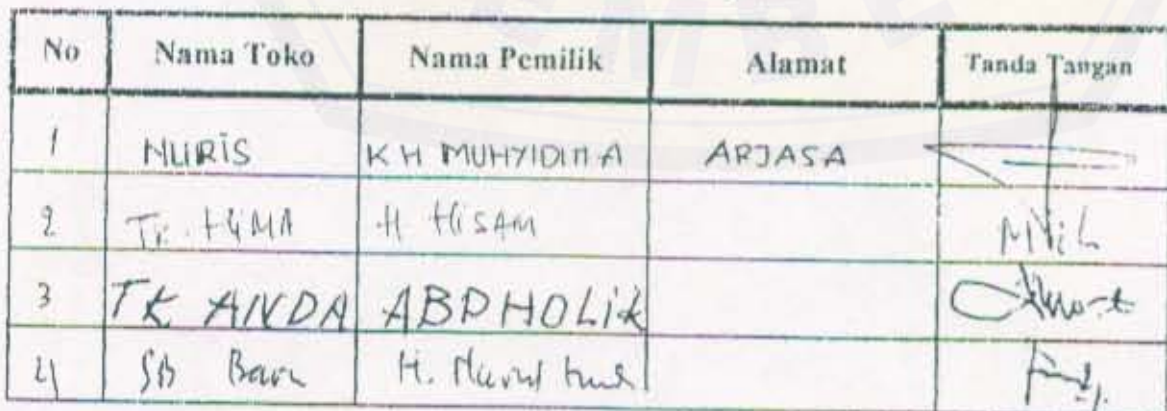 No Nama Toko Nama Pemilik Alamat Tanda Tangan
1 NURIS K H MUHYIDIN A ARJASA
2 H HISAM
3 TK ANDA ABD HOLIK
4 SB Baru H. Nurul